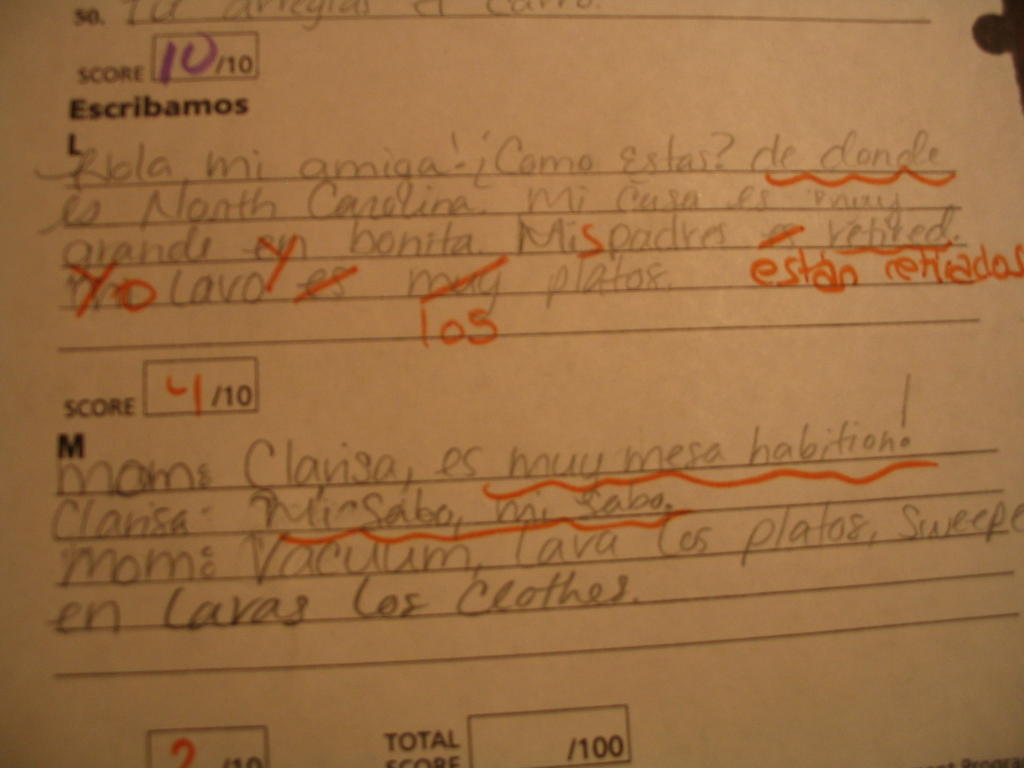 50. Tú arreglas el carro.
SCORE 10/10
Escribamos
L
Hola, mi amiga! ¿Como Estas? de donde
es North Carolina. Mi casa es muy
grande en y bonita. Mis padres es retired.
Yo lavo es muy platos. están retirados
los
SCORE 4/10
M
mom: Clarisa, es muy mesa habition!
Clarisa: Mi sabo, mi sabo.
mom: Vacuum, lava los platos, Sweepe
en Lavas los Clothes.
2/10
TOTAL
SCORE /100